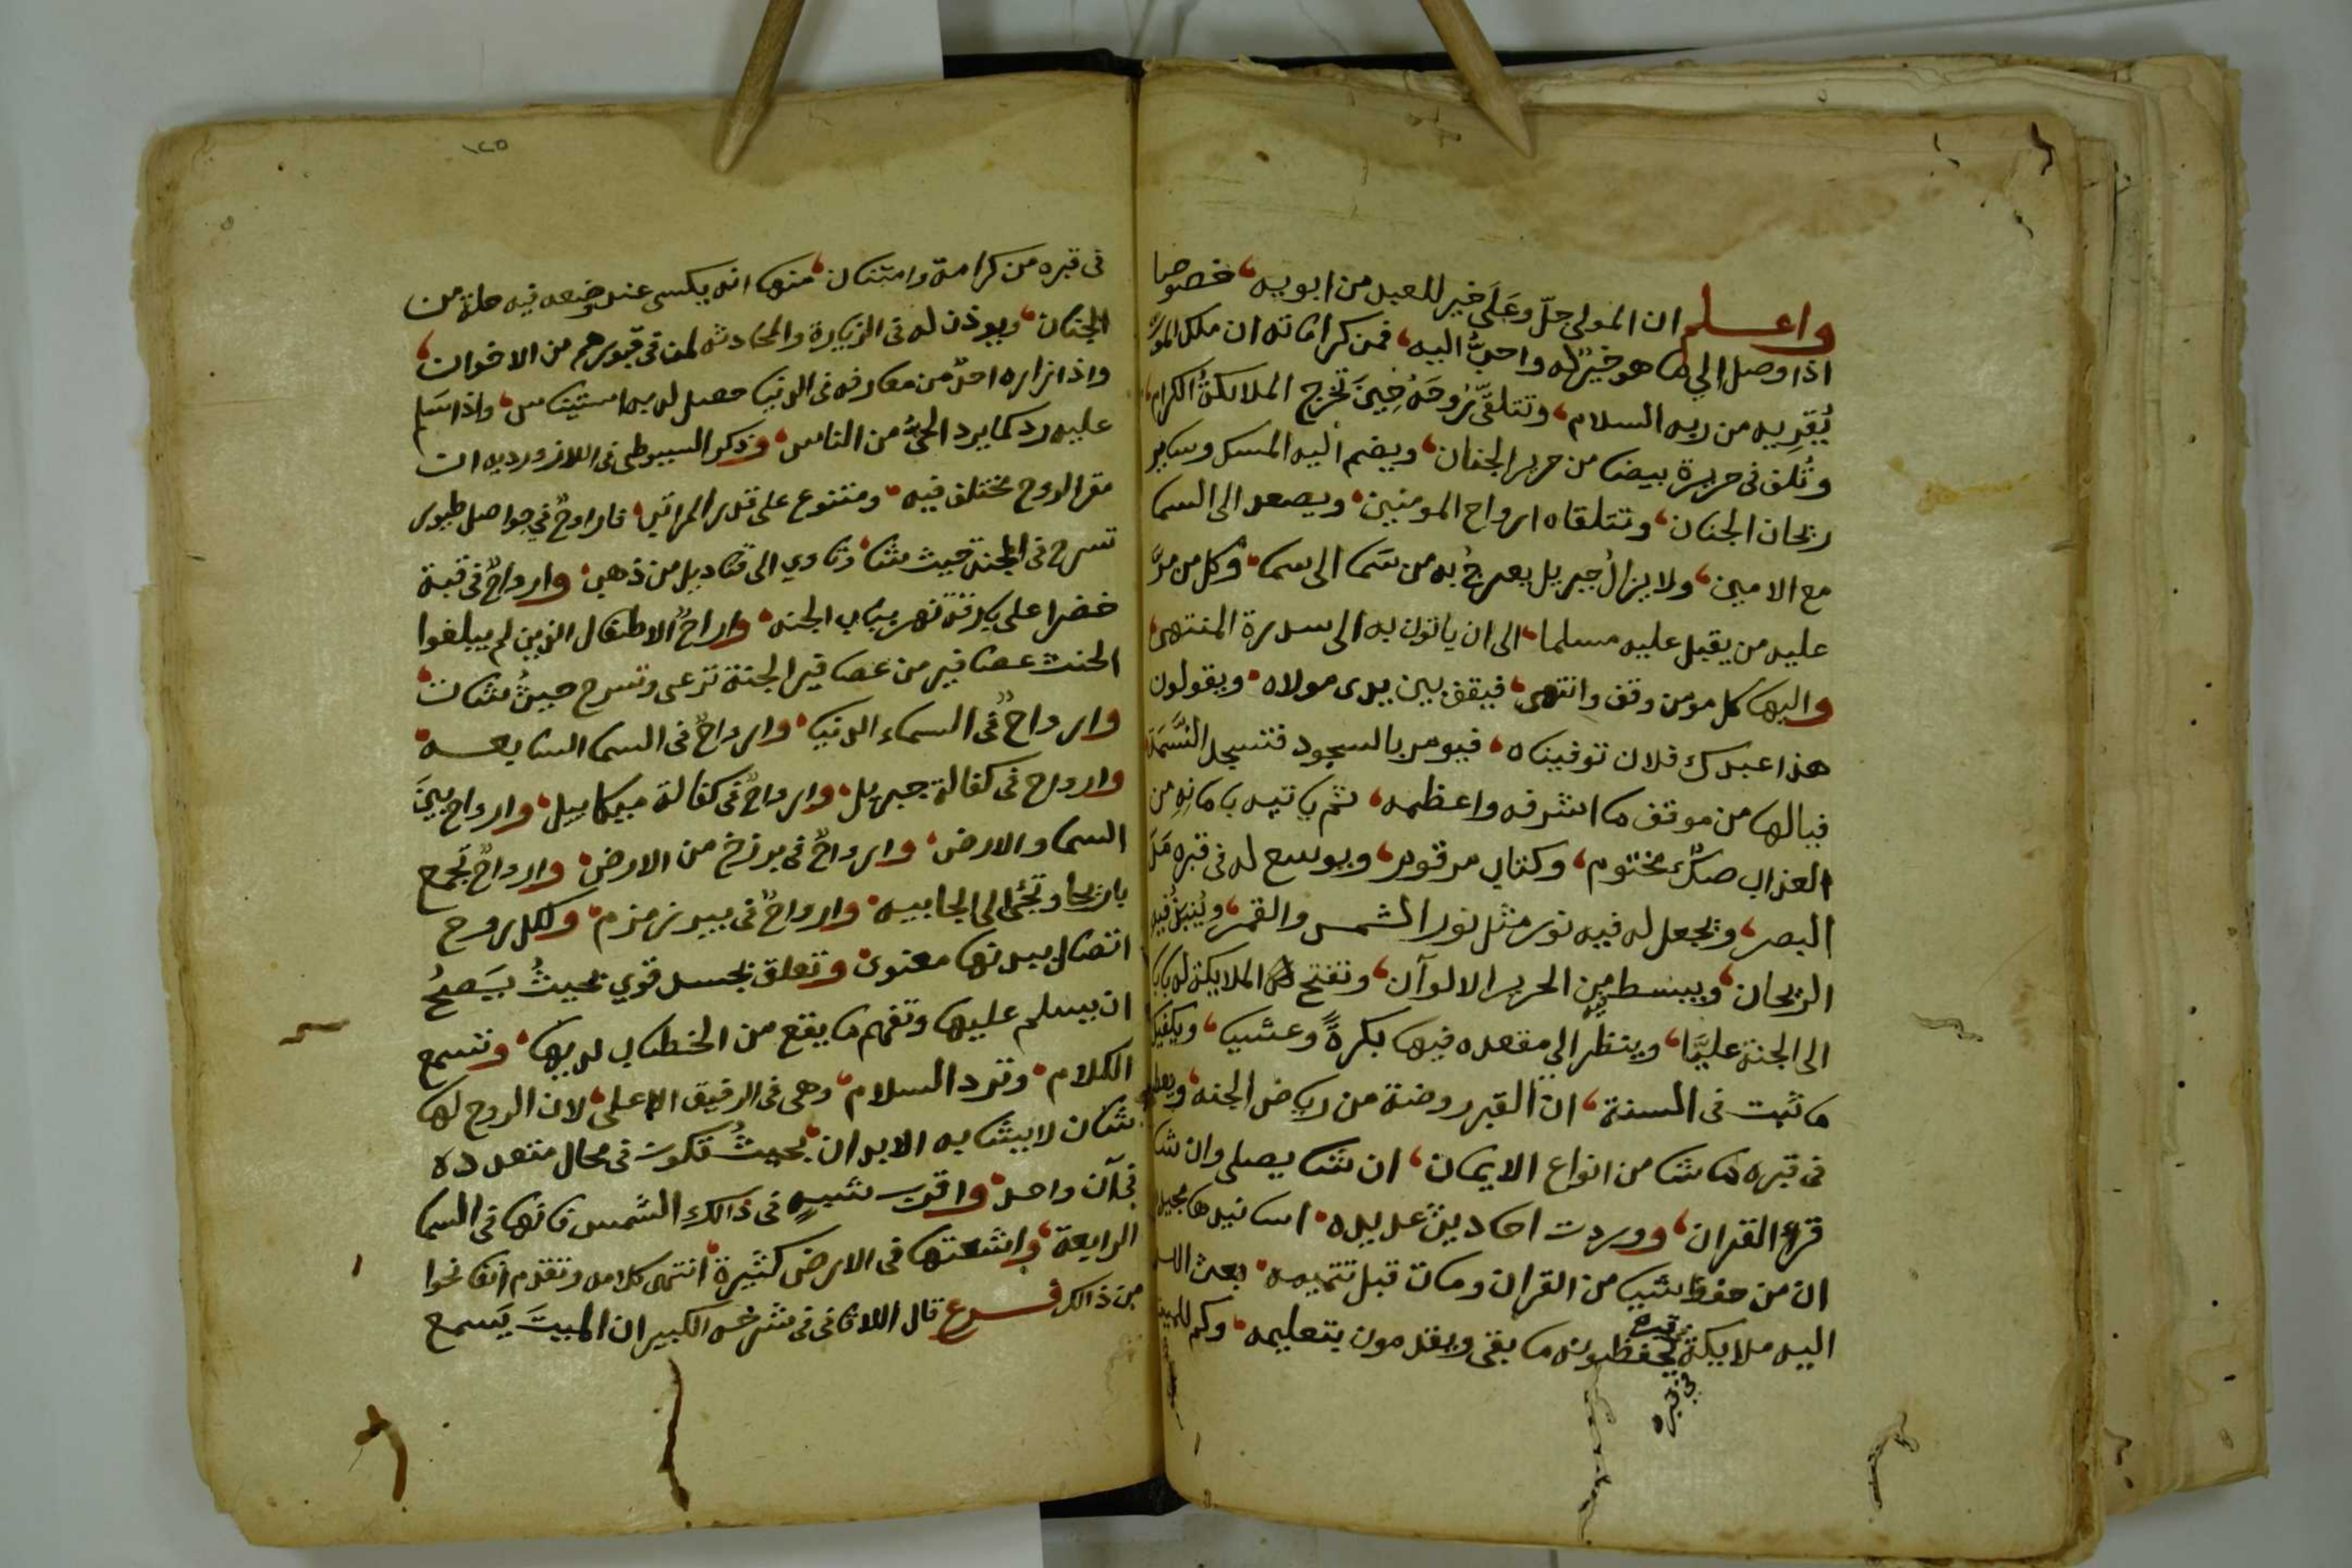 واعلم ان المولى جلّ وعَلَى خير للعبد من ابويه، خصوصا
اذا وصل الي ما هو خيرٌ له واحبُّ اليه، فمن كراماته ان ملك الموت
يُقرِيه من ربه السلام، وتتلقّى رُوحَهُ حِينَ تخرج الملائكةُ الكرام،
وتُلف فى حريرة بيضا من حرير الجنان، ويضم اليه المسك وساير
ريحان الجنان، وتتلقاه ارواح المومنين، ويصعد الى السما
مع الامين، ولا يزالُ جبريل يعرجُ به من سَما الى سما، وكل من مرَّ
عليه من يقبل عليه مسلما، الى ان ياتون به الى سدرة المنتهى،
واليها كل مومن وقف وانتهى، فيقف بين يدى مولاه، ويقولون
هذا عبدك فلان توفيناه، فيومر بالسجود فتسجد النَّسَمَة
فيالها من موقف ما اشرفه واعظمه، ثم ياتيه بامانهِ من
العذاب صكٌ مختوم، وكتاب مرقوم، ويوسع له فى قبره مَدَّ
البصر، ويجعل له فيه نور مثل نور الشمس والقمر، ويُنبَذُ فيه
الريحان، ويبسط من الحرير الالوآن، وتفتح الملايكة له بابا
الى الجنة عليًّا، وينظر الي مقعده فيها بكرةً وعشيا، ويكفيك
ما ثبت فى السنة، ان القبر روضة من رياض الجنه، ويعطى
فى قبره ما شا من انواع الايمان، ان شا يصلى وان شا
قرا القران، ووردت احاديث عديده، اسانيدها مجيده
ان من حفظ شيا من القران ومات قبل تتميمه، بعث الله
اليه ملايكة يحفظونه ما بقى ويقدمون بتعليمه، وكم للميت
قبره
في قبره
١٢٥
فى قبره من كرامة وامتنان، منها انه يكسى عند وضعه فيه حلة من
الجنان، ويوذن له فى الزيارة والمحادثه لمن فى قبورهم من الاخوان،
واذا زاره احدٌ من معارفه فى الدنيا حصل له به استيناس، واذا سَلم
عليه رد كما يرد الحيُّ من الناس، وذكر السيوطى فى اللازورديه ان
مقر الروح مختلف فيه، ومتنوع على قدر المراتب، فارواحٌ في حواصل طيور
تسرح فى الجنة حيث شا، وتاوي الى قناديل من ذهب، وارواحٌ فى قبة
خضرا على بارقة نهر بباب الجنه، وارواحُ الاطفال الذين لم يبلغوا
الحنث عصافير من عصافير الجنة ترعى وتسرح حيثُ شات،
وارواحٌ فى السماء الدنيا، وارواحٌ فى السما السابعه،
وارواح فى كفالة جبريل، وارواحٌ فى كفالة ميكاييل، وارواح بينَ
السما والارض، وارواحٌ فى برزخ من الارض، وارواحٌ تجمع
باريحا وتجئى الى الجابيه، وارواحٌ فى بير زمزم، ولكل روح
اتصال ببدنها معنوى، وتعلق بجسد قوي بحيثُ يَصحُ
ان يسلم عليها وتفهم ما يقع من الخطاب لديها، وتسمع
الكلام، وترد السلام، وهى فى الرفيق الاعلى، لان الروح لها
شان لا يشابه الابدان، بحيثُ تكون فى محال متعدده
فى آن واحد، واقرب شبيهٍ فى ذالك الشمس فانها فى السما
الرابعة، واشعتها فى الارض كثيرة، انتهى كلامه وتقدم انفا نحوا
من ذالك فرع قال اللاقانى فى شرحه الكبير ان الميتَ يَسمع